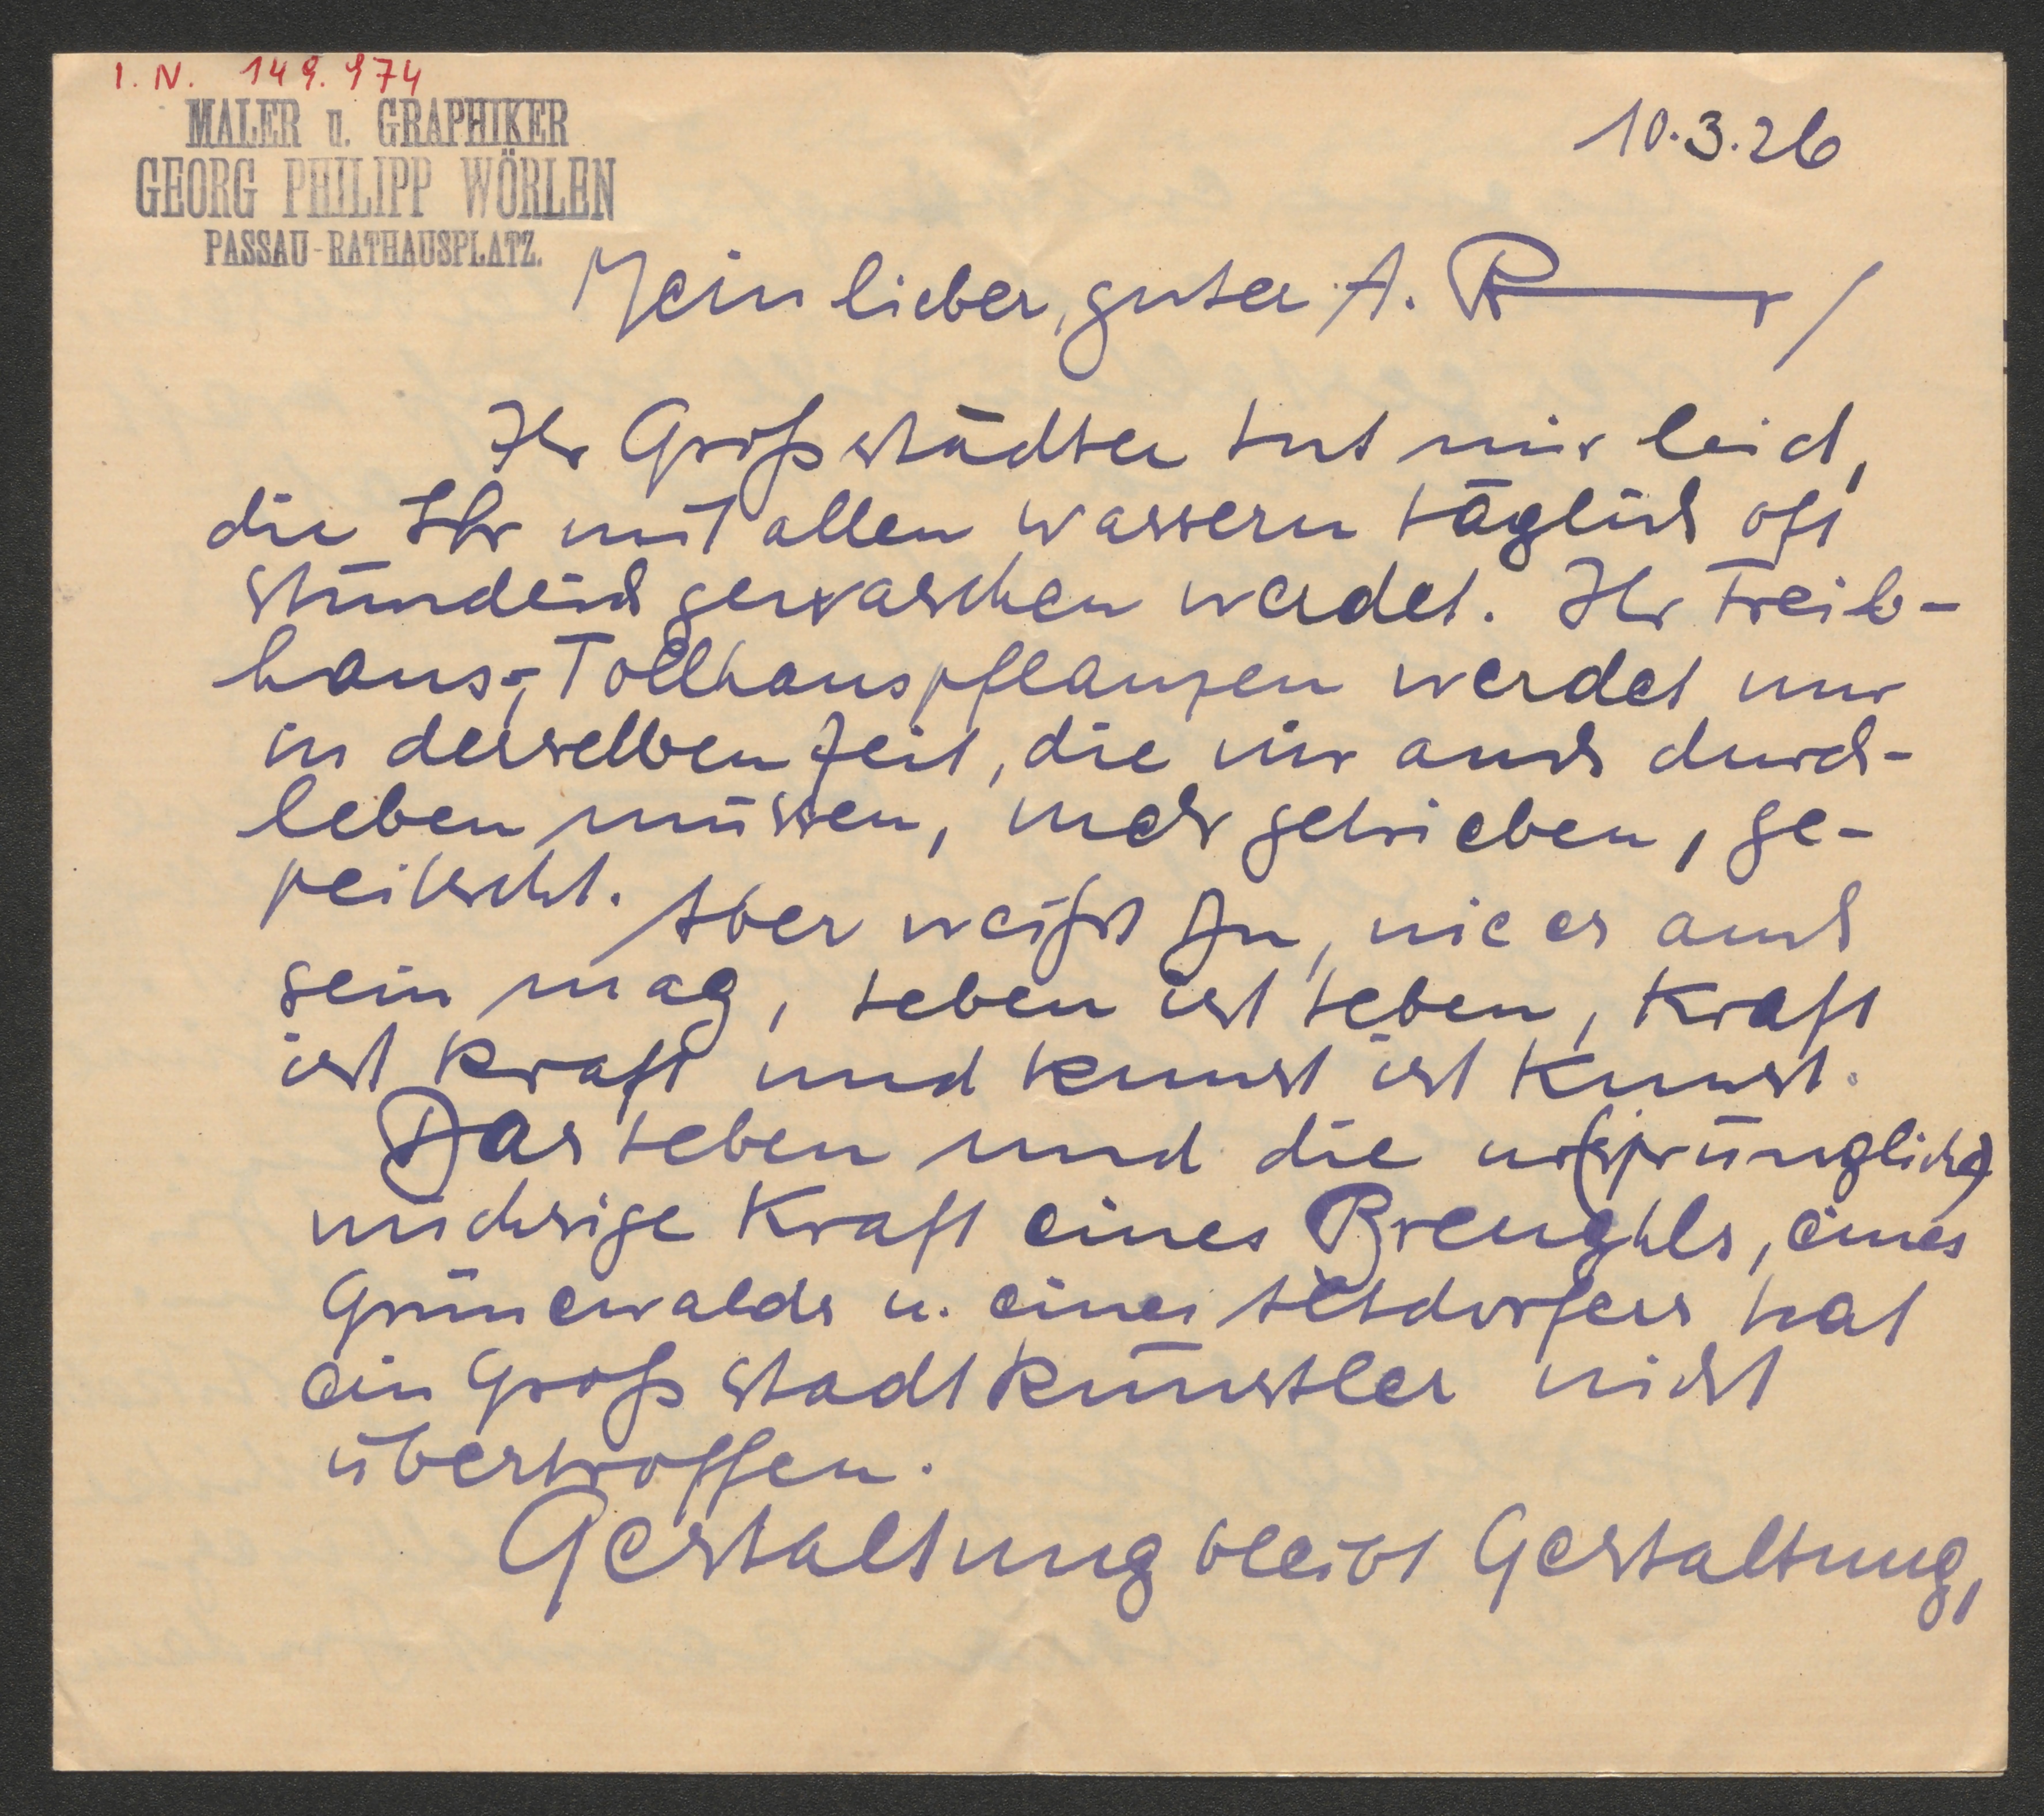 I. N. 149.974
MALER u. GRAPHIKER
GEORG PHILIPP WÖRLEN
PASSAU-RATHAUSPLATZ.
10.3.26
Mein lieber, guter A. R———r/
Ihr Großstädter tut mir leid,
die Ihr mit allen wassern täglich oft
stündlich gewaschen werdet. Ihr Treib-
haus-, Tollhauspflanzen werdet nur
in derselben Zeit, die wir auch durch-
leben müssen, mehr getrieben, ge-
peitscht.
Aber weißt Du, wie es auch
sein mag, Leben ist Leben, Kraft
ist Kraft und Kunst ist Kunst.
Das Leben und die ur(sprüngliche)
wüchsige Kraft eines Breughls, eines
Grünewalds u. eines Altdorfers hat
ein Großstadtkünstler nicht
übertroffen.
Gestaltung bleibt Gestaltung,